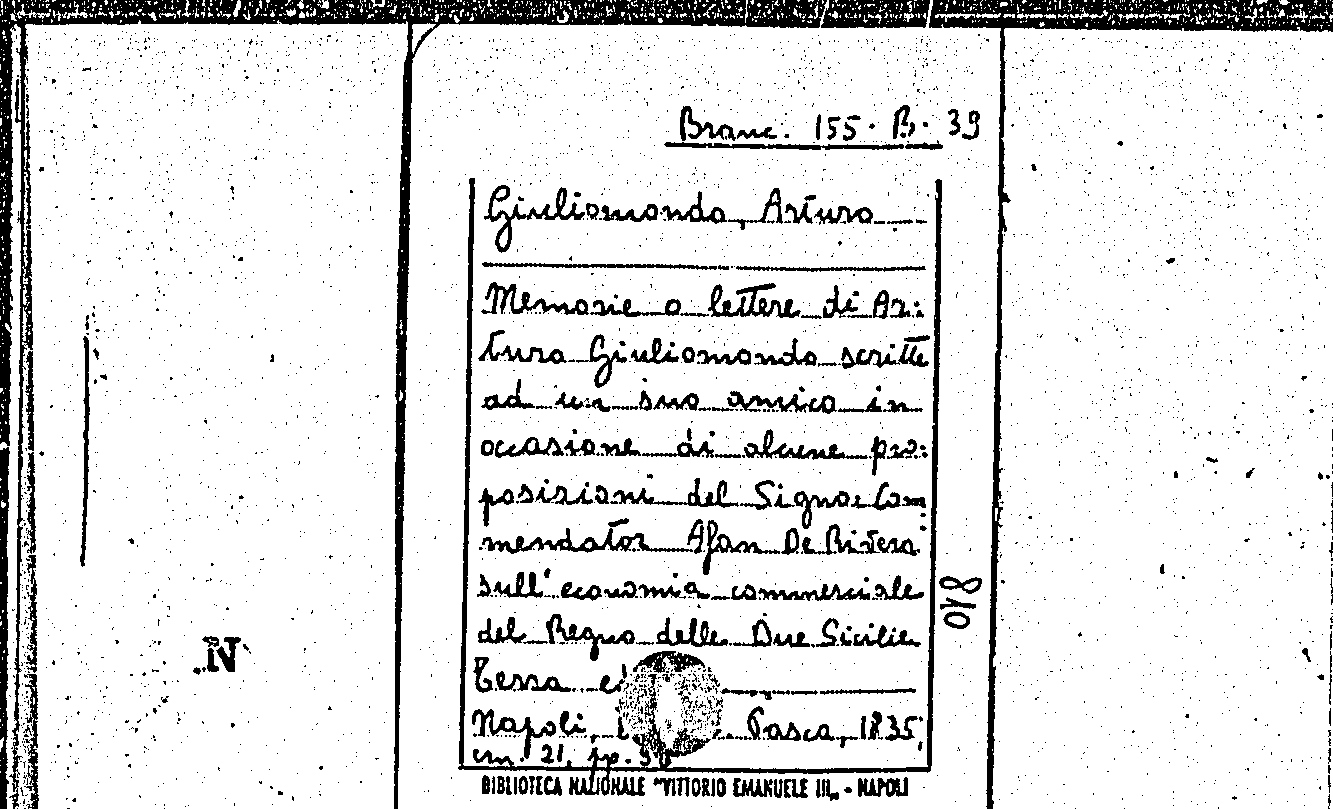 Branc. 155. B. 39
Giuliomondo, Arturo
Memorie o lettere di Ar:
turo Giuliomondo scritte
ad un suo amico in
occasione di alcune pro:
posizioni del Signor Com
mendator Afan De Rivera
sull'economia commerciale
del Regno delle Due Sicilie
Terza
Napoli, Pasca, 1835,
cm. 21, pp.
810
N
BIBLIOTECA NAZIONALE "VITTORIO EMANUELE III„ - NAPOLI